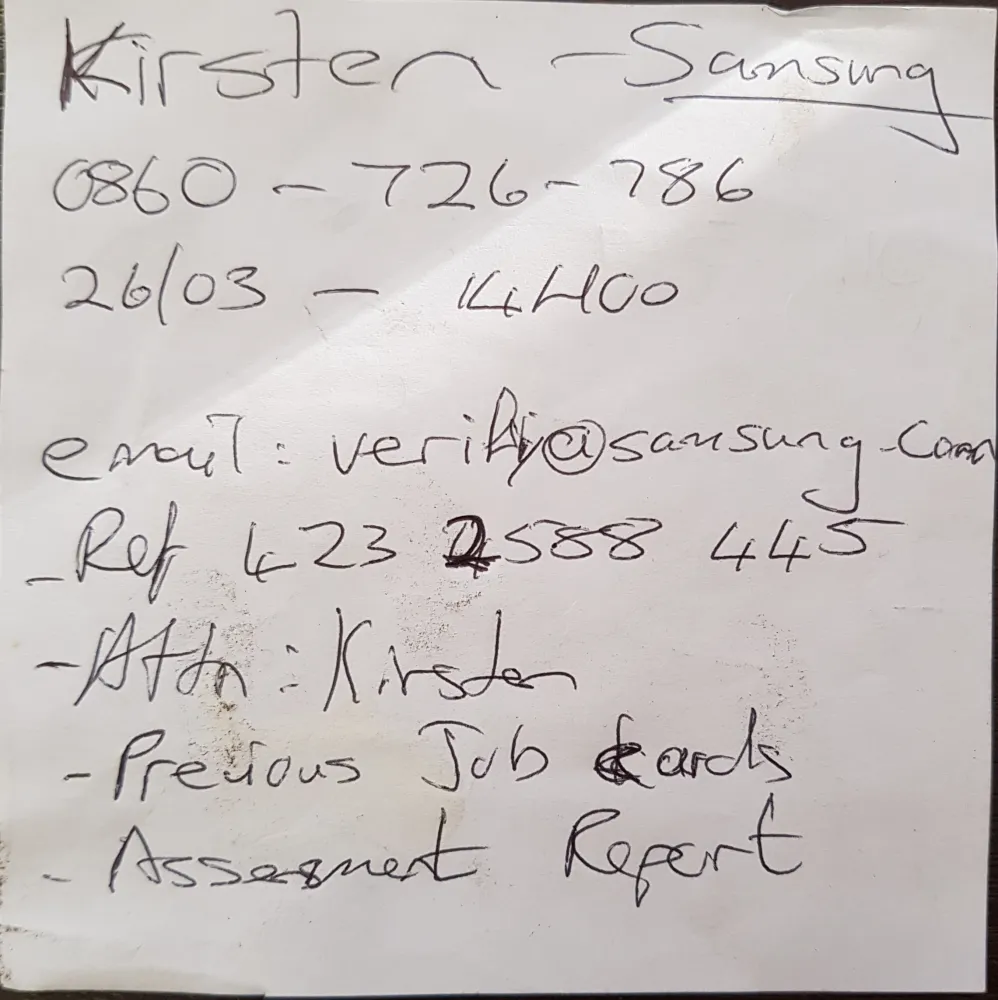 Kirsten - Samsung
0860 - 726 - 786
26/03 - 14H00
email: verify@samsung.com
- Ref 423 2588 445
- Attn: Kirsten
- Previous Job Cards
- Assesment Report